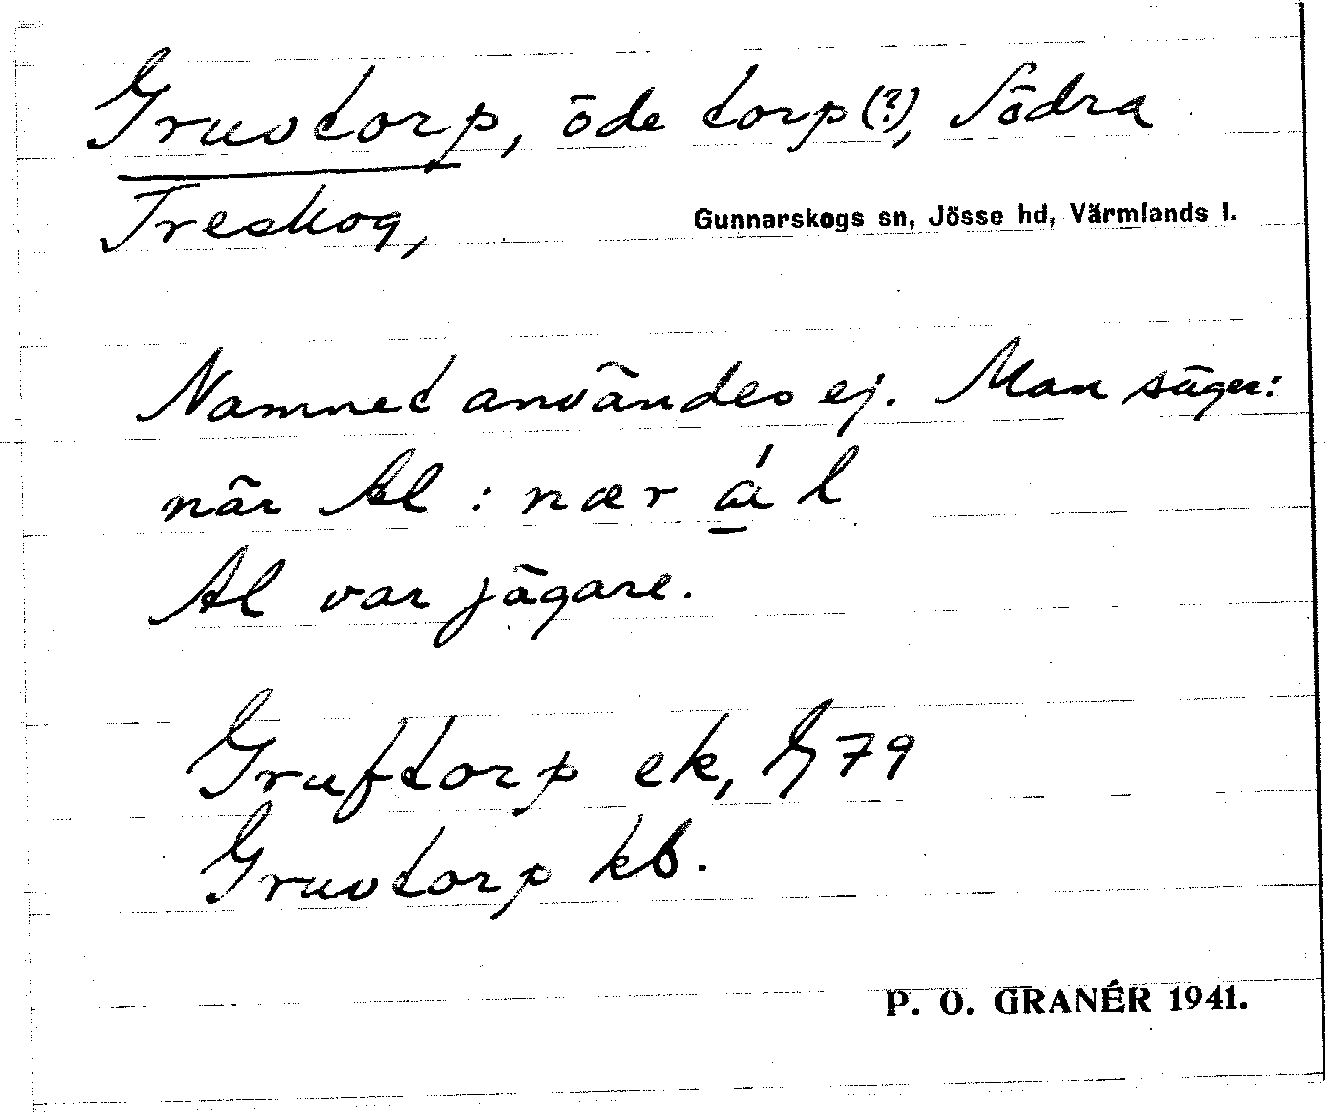 Gruvtorp, öde torp (?), Södra
Treskog,
Gunnarskogs sn, Jösse hd, Värmlands l.
Namnet användes ej. Man säger:
när Al : nær a̲̍ l
Al var jägare.
Gruftorp ek, G79
Gruvtorp kb.
P. O. GRANÉR 1941.